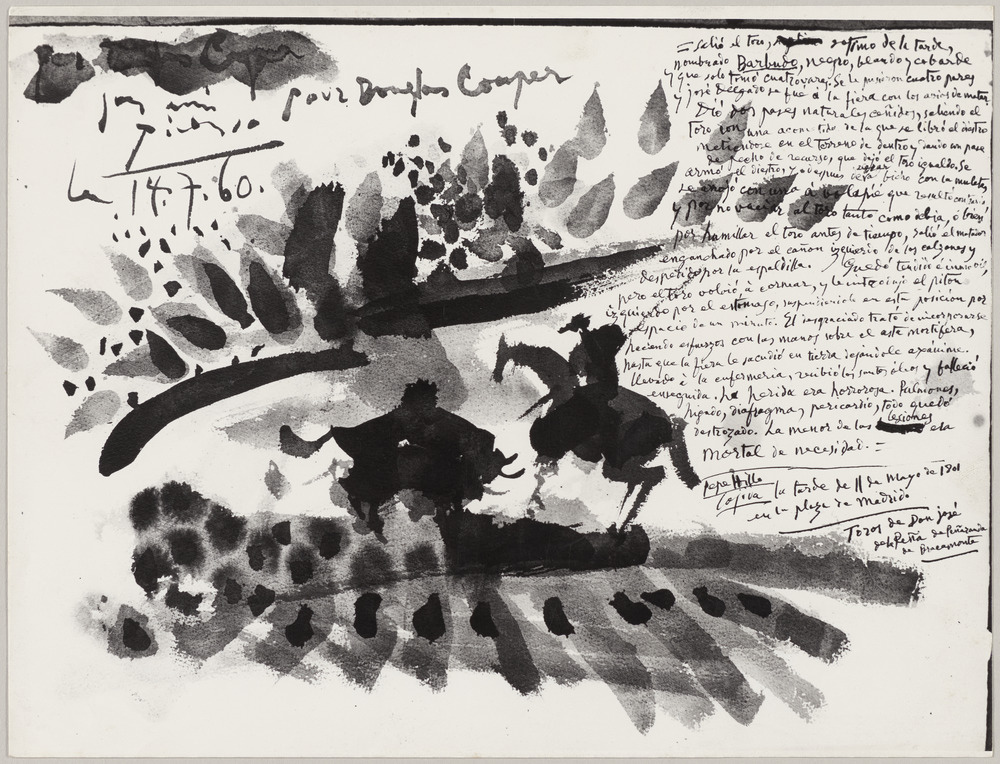 pour Douglas Couper
son ami
Picasso
le 14.7.60.
pour Douglas Couper
= Salió el toro, setimo de la tarde,
nombrado Barbudo, negro, blando y cobarde
y que solo tomó cuatro varas. Se le pusieron cuatro pares
y José Delgado se fue á la fiera con los avios de matar.
Dió dos pases naturales ceñidos, saliendo el
toro con una acometida de la que se libró el diestro
metiendose en el terreno de dentro y dando un pase
de pecho de recurso, que dejó el toro igualado. Se
armó el diestro, y despues bicho con la muleta
se arrojó con una á volapié que resultó
y por no vaciar al toro tanto como debia, ó bien
por humillar el toro antes de tiempo, salió el matador
enganchado por el cañon izquierdo de los calzones y
despedido por la espaldilla. Quedó tendido é inmovil,
pero el toro volvió á cornear, y le introdujo el piton
izquierdo por el estomago, suspendiendole en esta posicion por
espacio de un minuto. El desgraciado trató de incorporarse
haciendo esfuerzos con las manos sobre el asta mortifera,
hasta que la fiera le sacudió en tierra dejandole exánime.
Llevado á la enfermeria, recibió los santos oleos y falleció
enseguida. La herida era horrorosa. Pulmones,
higado, diafragma, pericardio, todo quedó
destrozado. La menor de las lesiones era
mortal de necesidad. =
Pepe Hillo
la tarde de 11 de Mayo de 1801
en la plaza de Madrid.
Toros de Don José
de la Peña de Peñaranda
de Bracamonte